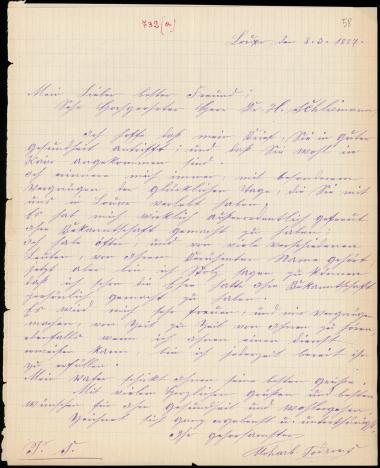 732(a)
58
den 8. 3. 1887.
Mein Lieber bester Freund!
Sehr Hochgeehrter Herr Dr. H. Schliemann,
Ich hoffe daß mein Brief, Sie in guter
Gesundheit antrifft; und daß Sie wohl in
Kairo angekommen sind.
ich erinnere mich immer, mit besonderem
Vergnügen der glücklichen Tage, die Sie mit
uns in verlebt haben;
Es hat mich wirklich außerordentlich gefreut
Ihre Bekanntschaft gemacht zu haben;
ich habe öfters, und von viele verschiedenen
Leuten, von Ihrem Berühmten Name gehört
jetzt aber bin ich Stolz sagen zu können
daß ich schon die Ehre hatte Ihre Bekanntschaft
persönlich gemacht zu haben.
Es wird mich sehr freuen, und mir vergnügen
machen, von Zeit zu Zeit von Ihnen zu hören,
ebenfalls wenn ich Ihnen einen dienst
erweisen kann, bin ich jederzeit bereit ihn
zu erfüllen.
Mein Vater schikt Ihnen seine besten Grüße.
Mit vielen herzlichen Grüßen und besten
wünschen für Ihre Gesundheit und wohlergehen
Zeichnet sich ganz ergebenst u. unterthänigst
Ihr gehorsamster